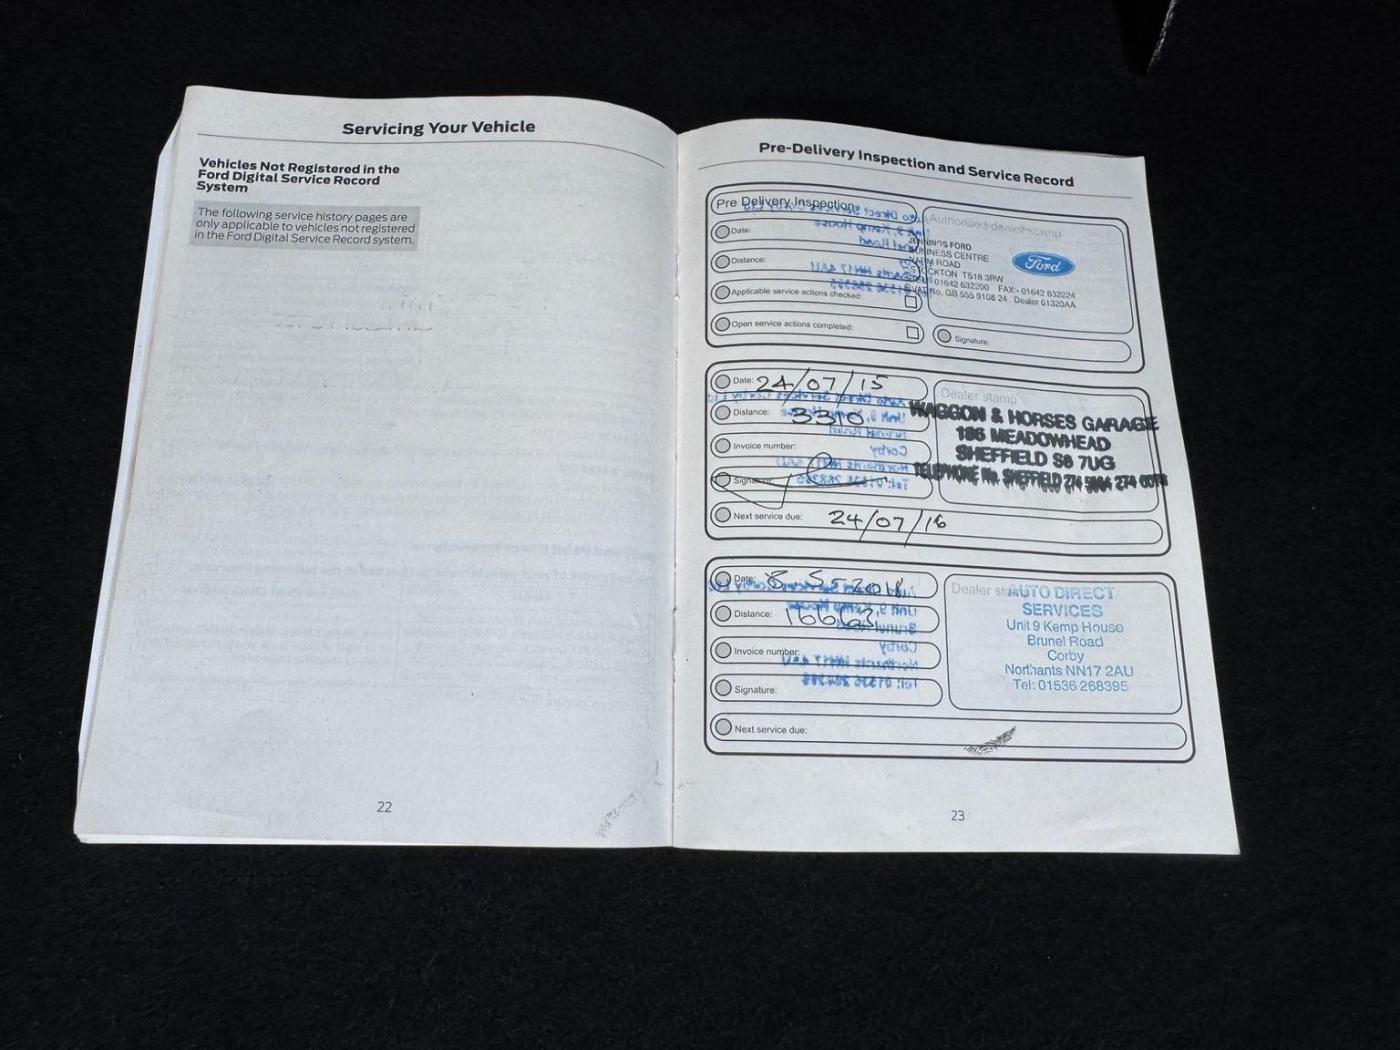 Servicing Your Vehicle
Vehicles Not Registered in the
Ford Digital Service Record
System
The following service history pages are
only applicable to vehicles not registered
in the Ford Digital Service Record system.
22
Pre-Delivery Inspection and Service Record
Pre Delivery Inspection
Date:
Distance:
Applicable service actions checked:
Open service actions completed:
Authorised dealer stamp
JENNINGS FORD
BUSINESS CENTRE
YARM ROAD
STOCKTON TS18 3RW
01642 632200 FAX:- 01642 632224
VAT No. GB 555 9108 24 Dealer 61320AA
Ford
Signature:
Date: 24/07/15
Distance: 3310
Invoice number:
Signature:
Next service due: 24/07/16
Dealer stamp
WAGGON & HORSES GARAGE
186 MEADOWHEAD
SHEFFIELD S8 7UG
TELEPHONE No. SHEFFIELD 274
Date: 8.5-2018
Distance: 16663
Invoice number:
Signature:
Next service due:
Dealer stamp
AUTO DIRECT
SERVICES
Unit 9 Kemp House
Brunel Road
Corby
Northants NN17 2AU
Tel: 01536 268395
23